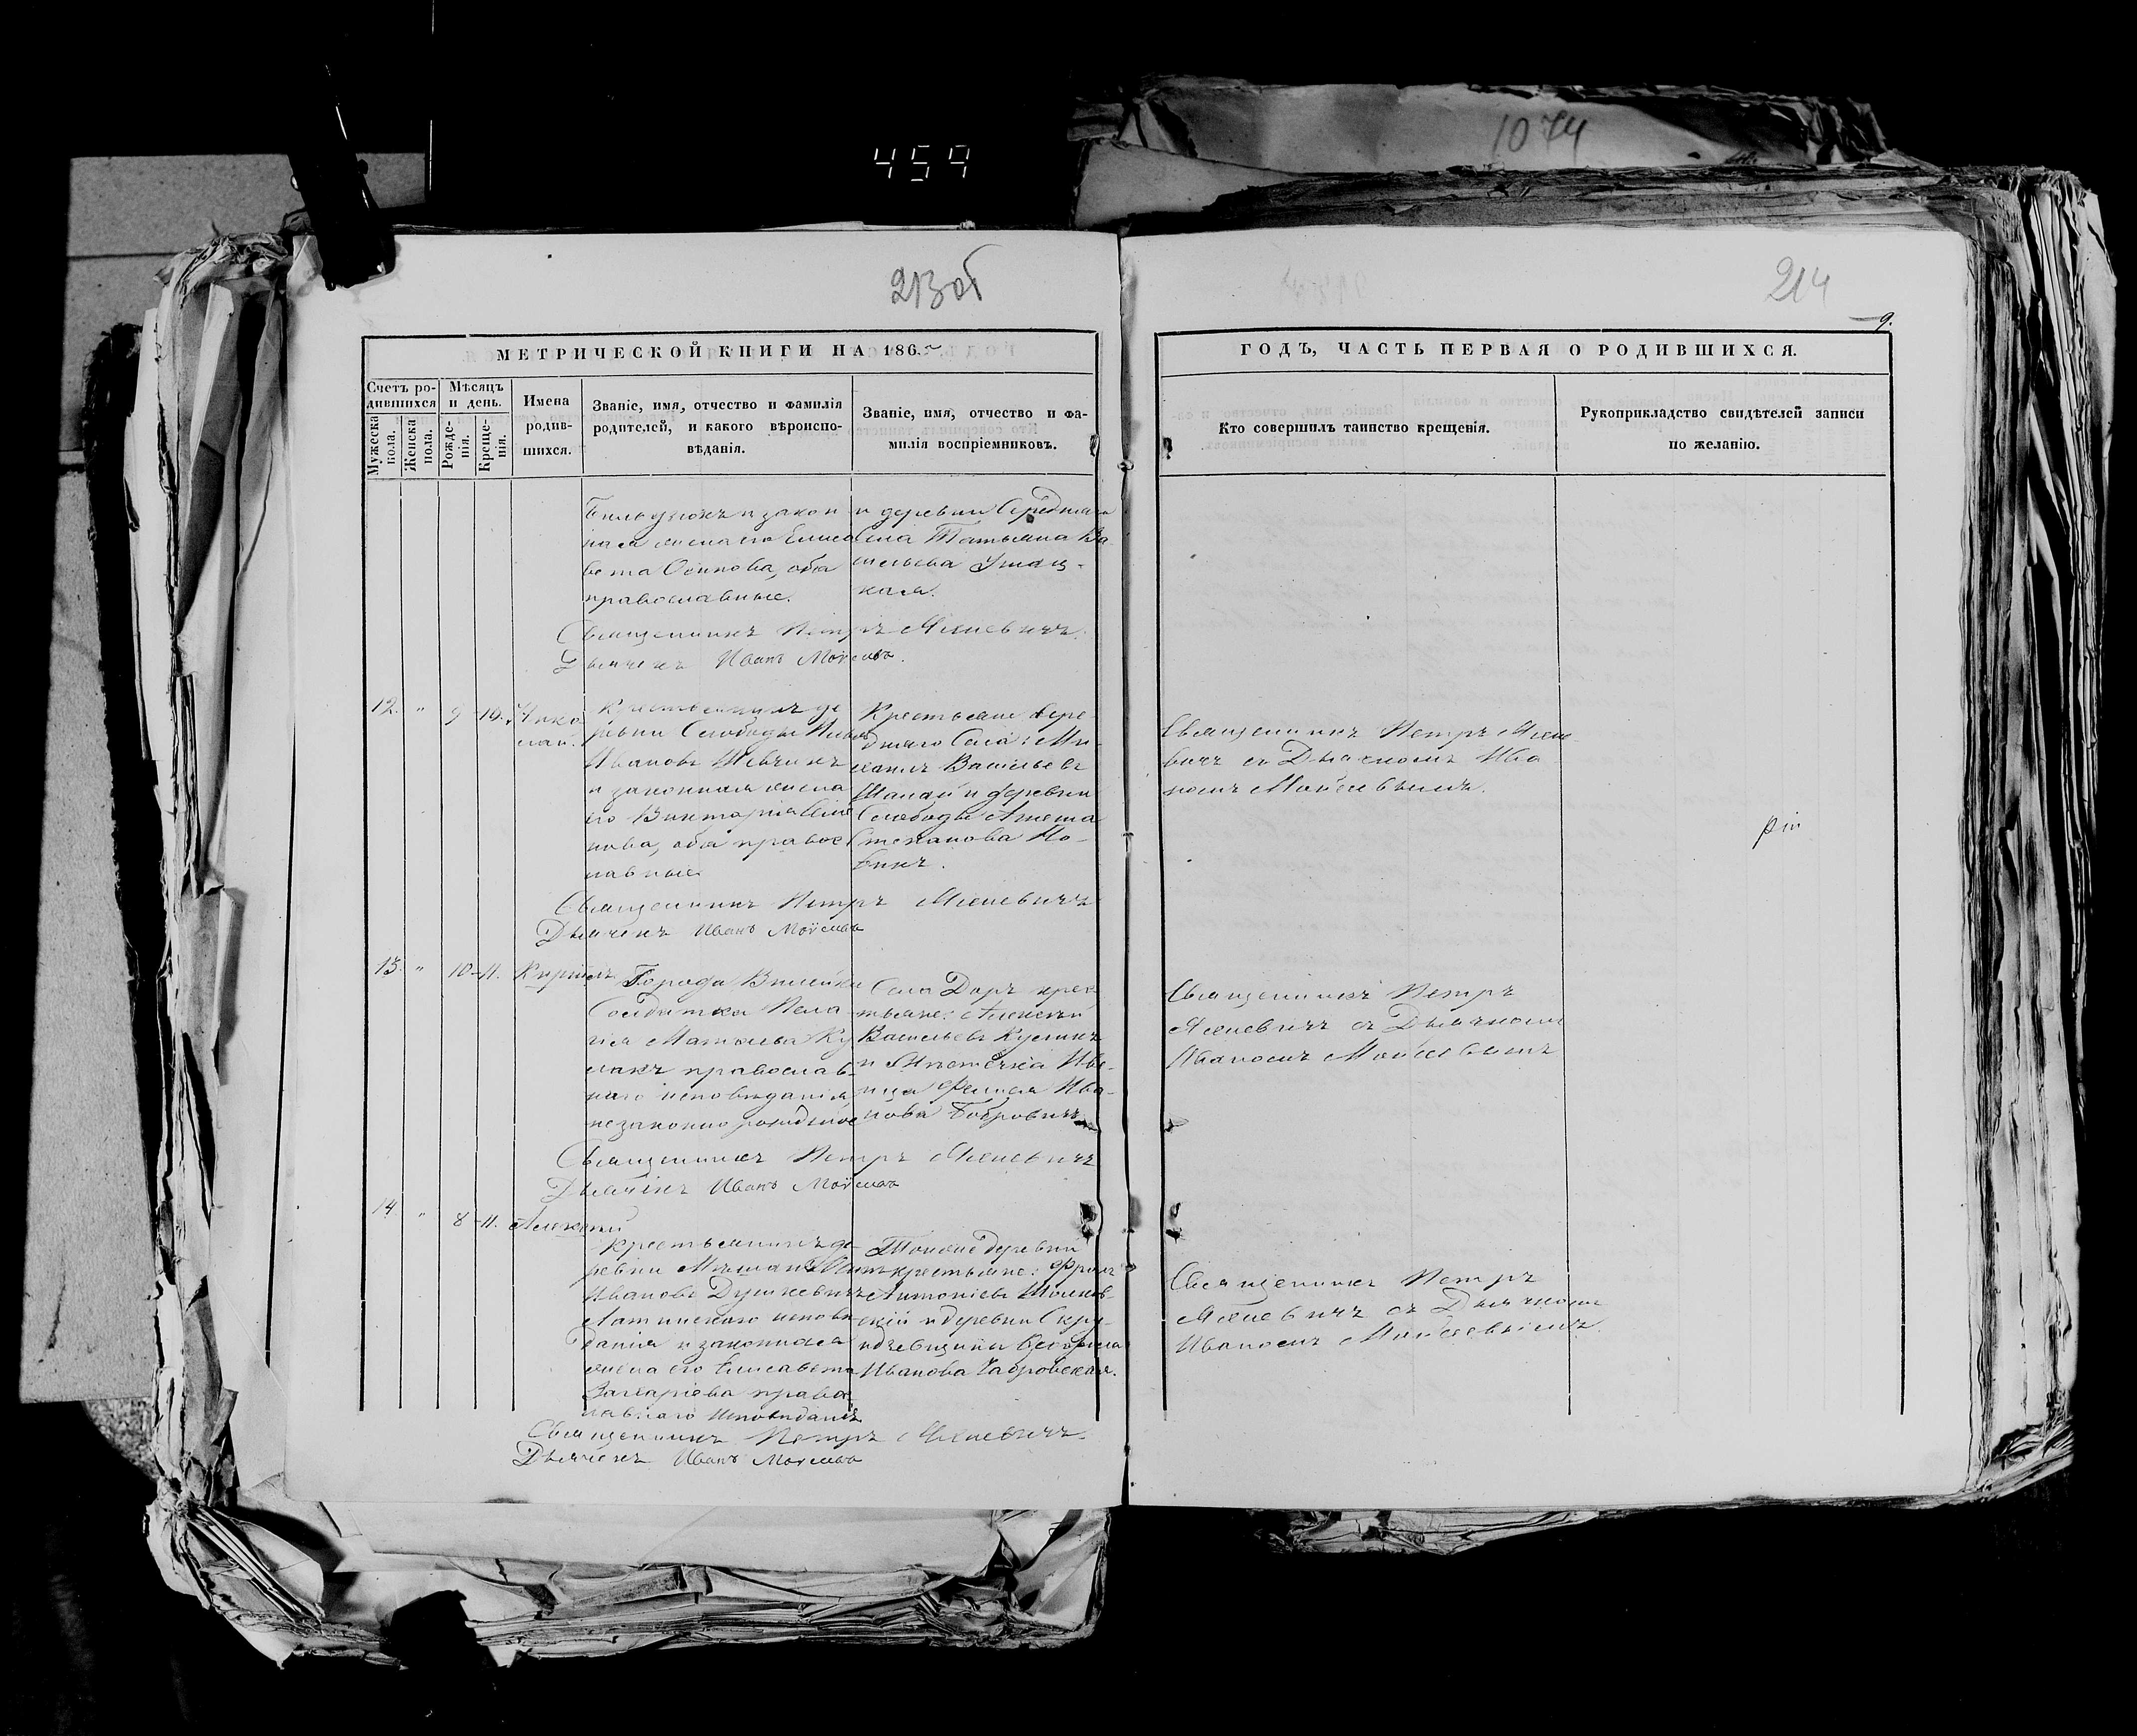 459
1074
213 об
214
9.
МЕТРИЧЕСКОЙ КНИГИ НА 1865
ГОДЪ, ЧАСТЬ ПЕРВАЯ О РОДИВШИХСЯ.
Счетъ ро-
дившихся
Мужеска
пола.
Женска
пола.
Мѣсяцъ
и день.
Рожде-
нія.
Креще-
нія.
Имена
родив-
шихся.
Званіе, имя, отчество и фамилія
родителей, и какого вѣроиспо-
вѣданія.
Званіе, имя, отчество и фа-
милія воспріемниковъ.
Кто совершилъ таинство крещенія.
Рукоприкладство свидѣтелей записи
по желанію.
и закон
ная жена его Елиса
вета Осипова, оба
православные.
и деревни Середняго
Села Татьяна Ва
сильева
кая.
Священникъ Петръ
Дьячекъ Иванъ
12. " 9 10. Нико
лай.
Крестьянинъ де
ревни Слободы
Ивановъ Шевчикъ
и законная жена
его Викторія Семе
нова, оба правос
лавные
Крестьяне Сере-
дняго Села: Ми-
хаилъ Васильевъ
Шалай и деревни
Слободы
Степанова Но-
викъ.
Священникъ Петръ
вичъ съ Дьячкомъ Ива
номъ Мойсеевымъ.
Священникъ Петръ
Дьячекъ Иванъ
13. " 10 11. Кирилъ
Города Вилейки
Солдатка Пела
гія Матѳеева Ку
лакъ православ
наго исповѣданія,
незаконно рожденное
Села Доръ крес
тьяне: Алексѣй
Васильевъ
и мѣстечка Иве-
нца Ива-
нова Бобровичъ
Священникъ Петръ
съ Дьячкомъ
Иваномъ Мойсеевымъ
Священникъ Петръ
Дьячекъ Иванъ
14 " 8 11. Алексѣй
Крестьянинъ де
ревни
Ивановъ Душкевичъ
Латинскаго исповѣ
данія и законная
жена его Елисавета
Захаріева правос
лавнаго исповѣданія
Тойже деревни
крестьяне:
Антоніевъ
скій и деревни
Иванова
Священникъ Петръ
съ Дьячкомъ
Иваномъ Мойсеевымъ.
Священникъ Петръ
Дьячекъ Иванъ